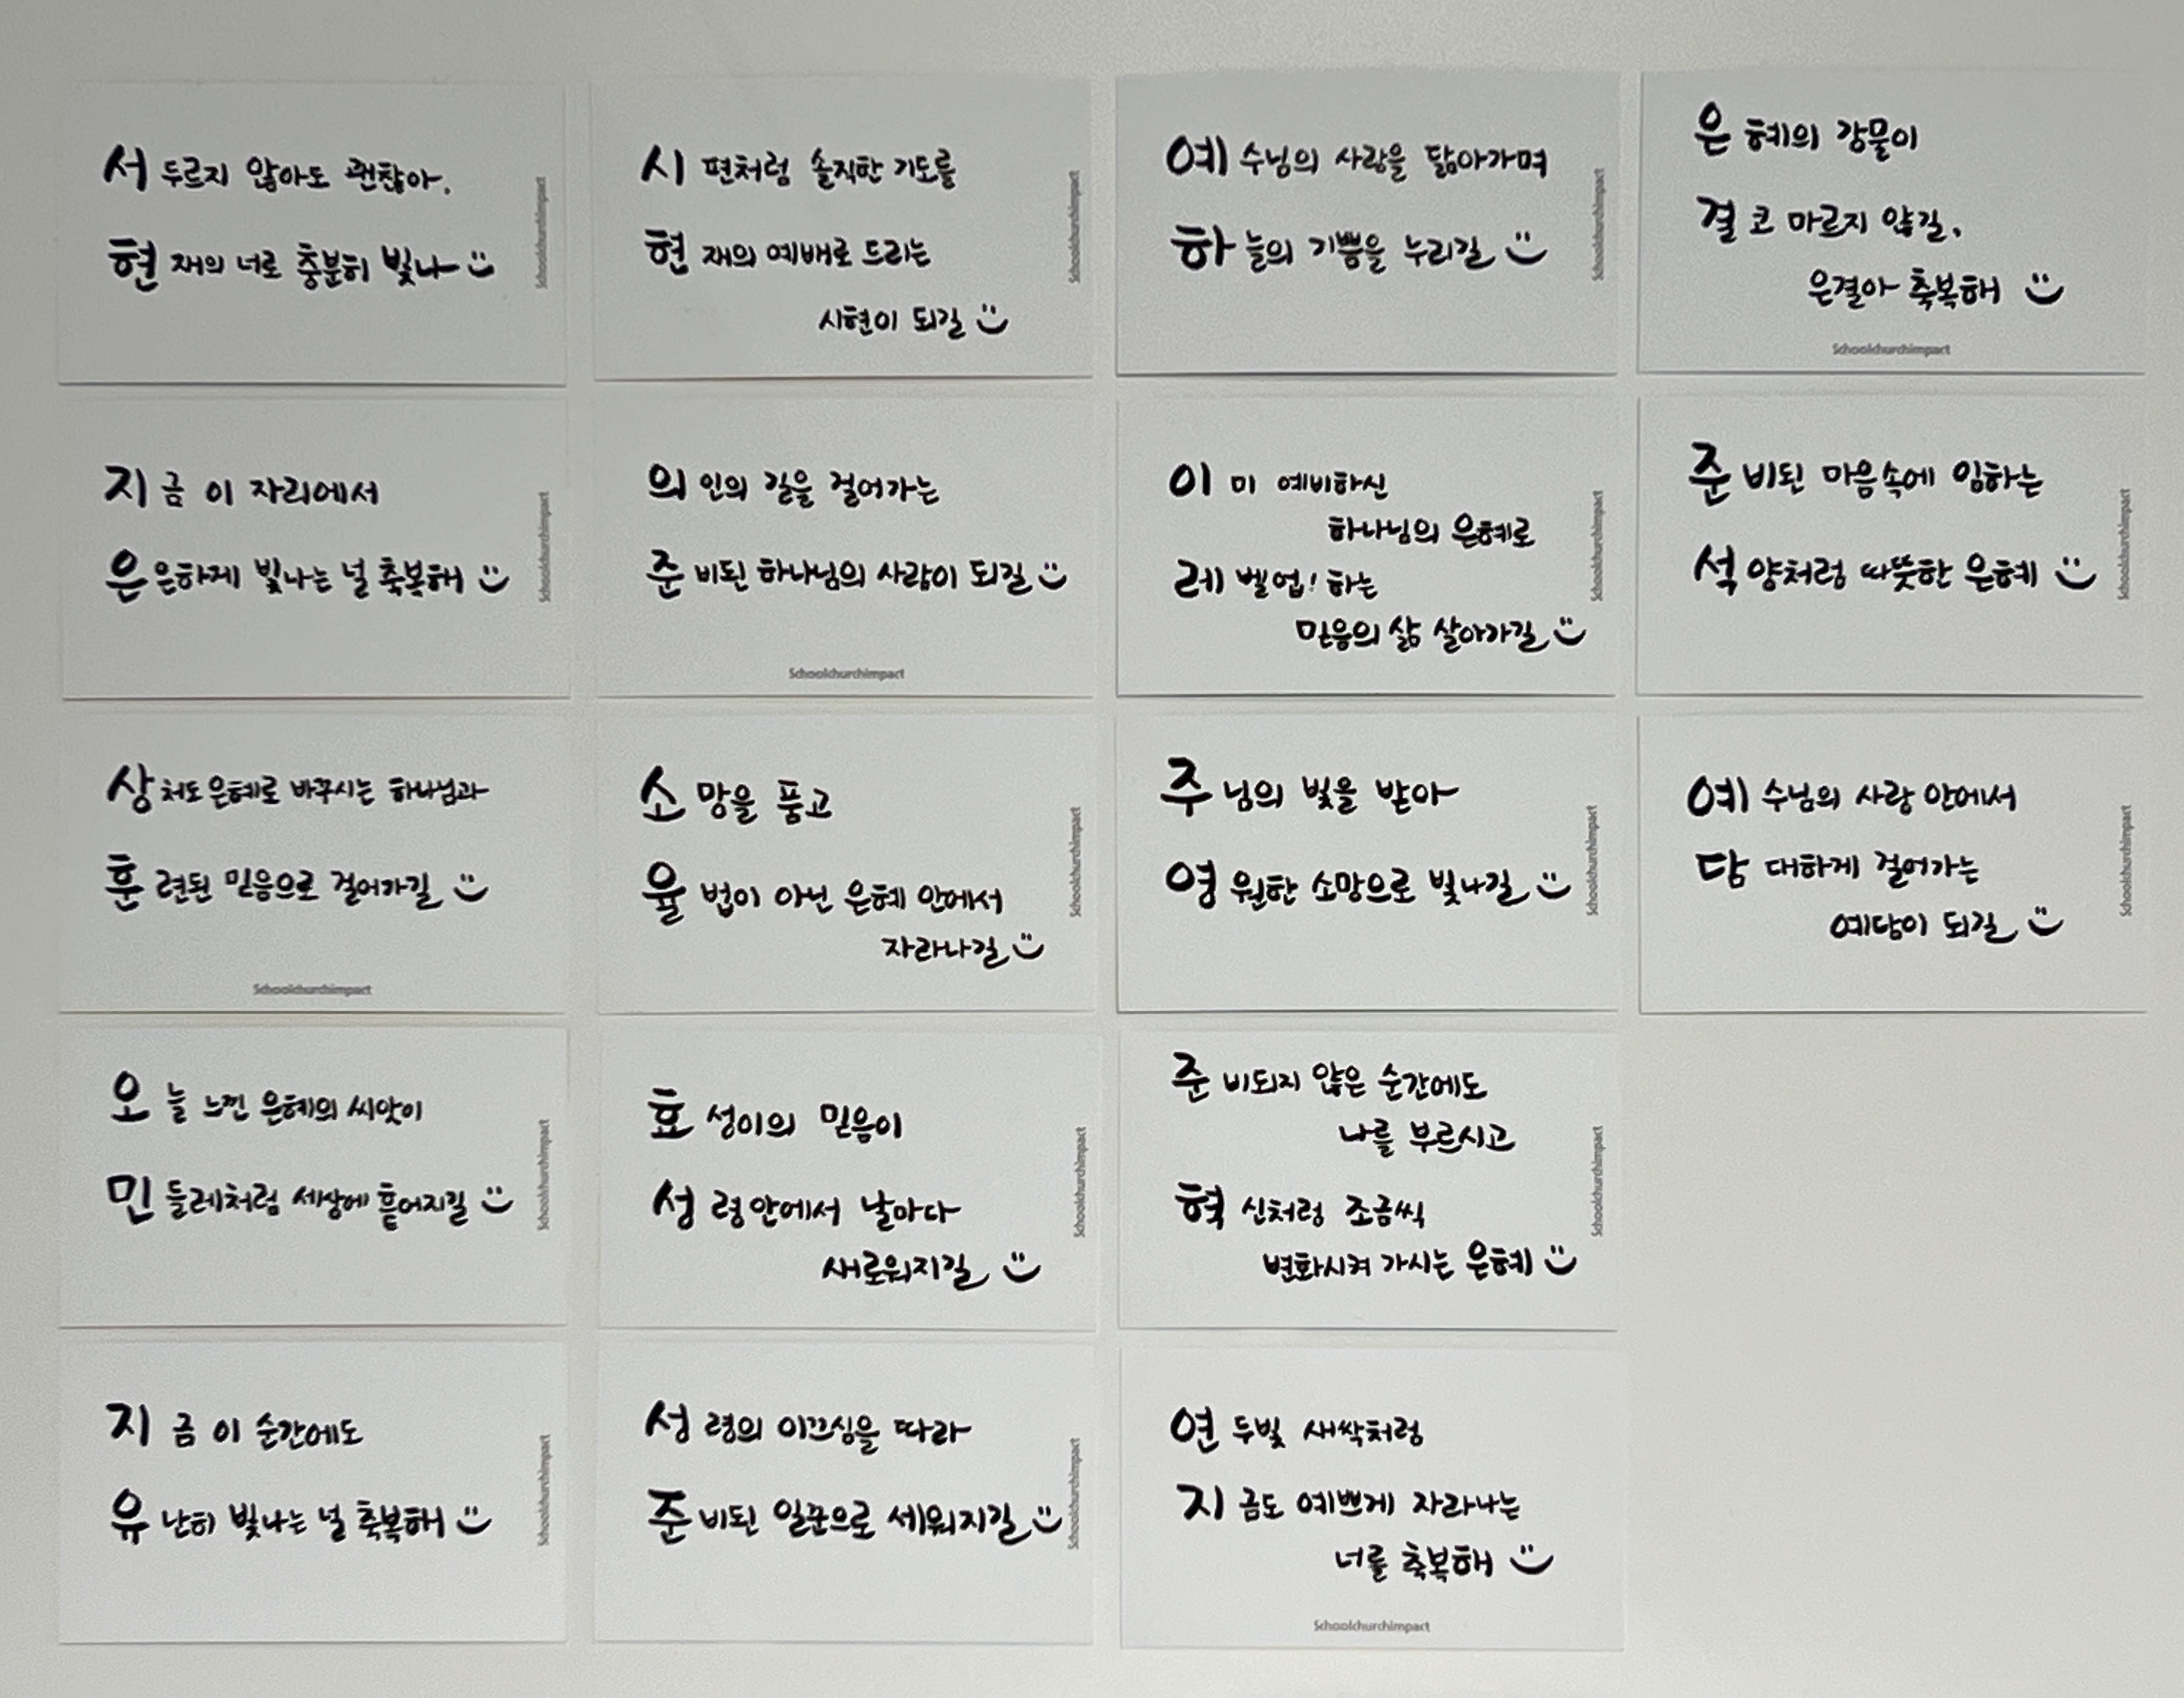 서두르지 않아도 괜찮아.
현재의 너로 충분히 빛나
Schoolchurchimpact
시편처럼 솔직한 기도를
현재의 예배로 드리는
시현이 되길
Schoolchurchimpact
예수님의 사랑을 닮아가며
하늘의 기쁨을 누리길
Schoolchurchimpact
은혜의 강물이
결코 마르지 않길,
은결아 축복해
Schoolchurchimpact
지금 이 자리에서
은은하게 빛나는 널 축복해
Schoolchurchimpact
의인의 길을 걸어가는
준비된 하나님의 사람이 되길
Schoolchurchimpact
이미 예비하신
하나님의 은혜로
레벨업! 하는
믿음의 삶 살아가길
Schoolchurchimpact
준비된 마음속에 임하는
석양처럼 따뜻한 은혜
Schoolchurchimpact
상처도 은혜로 바꾸시는 하나님과
훈련된 믿음으로 걸어가길
Schoolchurchimpact
소망을 품고
율법이 아닌 은혜 안에서
자라나길
Schoolchurchimpact
주님의 빛을 받아
영원한 소망으로 빛나길
Schoolchurchimpact
예수님의 사랑 안에서
담대하게 걸어가는
예담이 되길
Schoolchurchimpact
오늘 느낀 은혜의 씨앗이
민들레처럼 세상에 흩어지길
Schoolchurchimpact
효성이의 믿음이
성령안에서 날마다
새로워지길
Schoolchurchimpact
준비되지 않은 순간에도
나를 부르시고
혁신처럼 조금씩
변화시켜 가시는 은혜
Schoolchurchimpact
지금 이 순간에도
유난히 빛나는 널 축복해
Schoolchurchimpact
성령의 이끄심을 따라
준비된 일꾼으로 세워지길
Schoolchurchimpact
연두빛 새싹처럼
지금도 예쁘게 자라나는
너를 축복해
Schoolchurchimpact